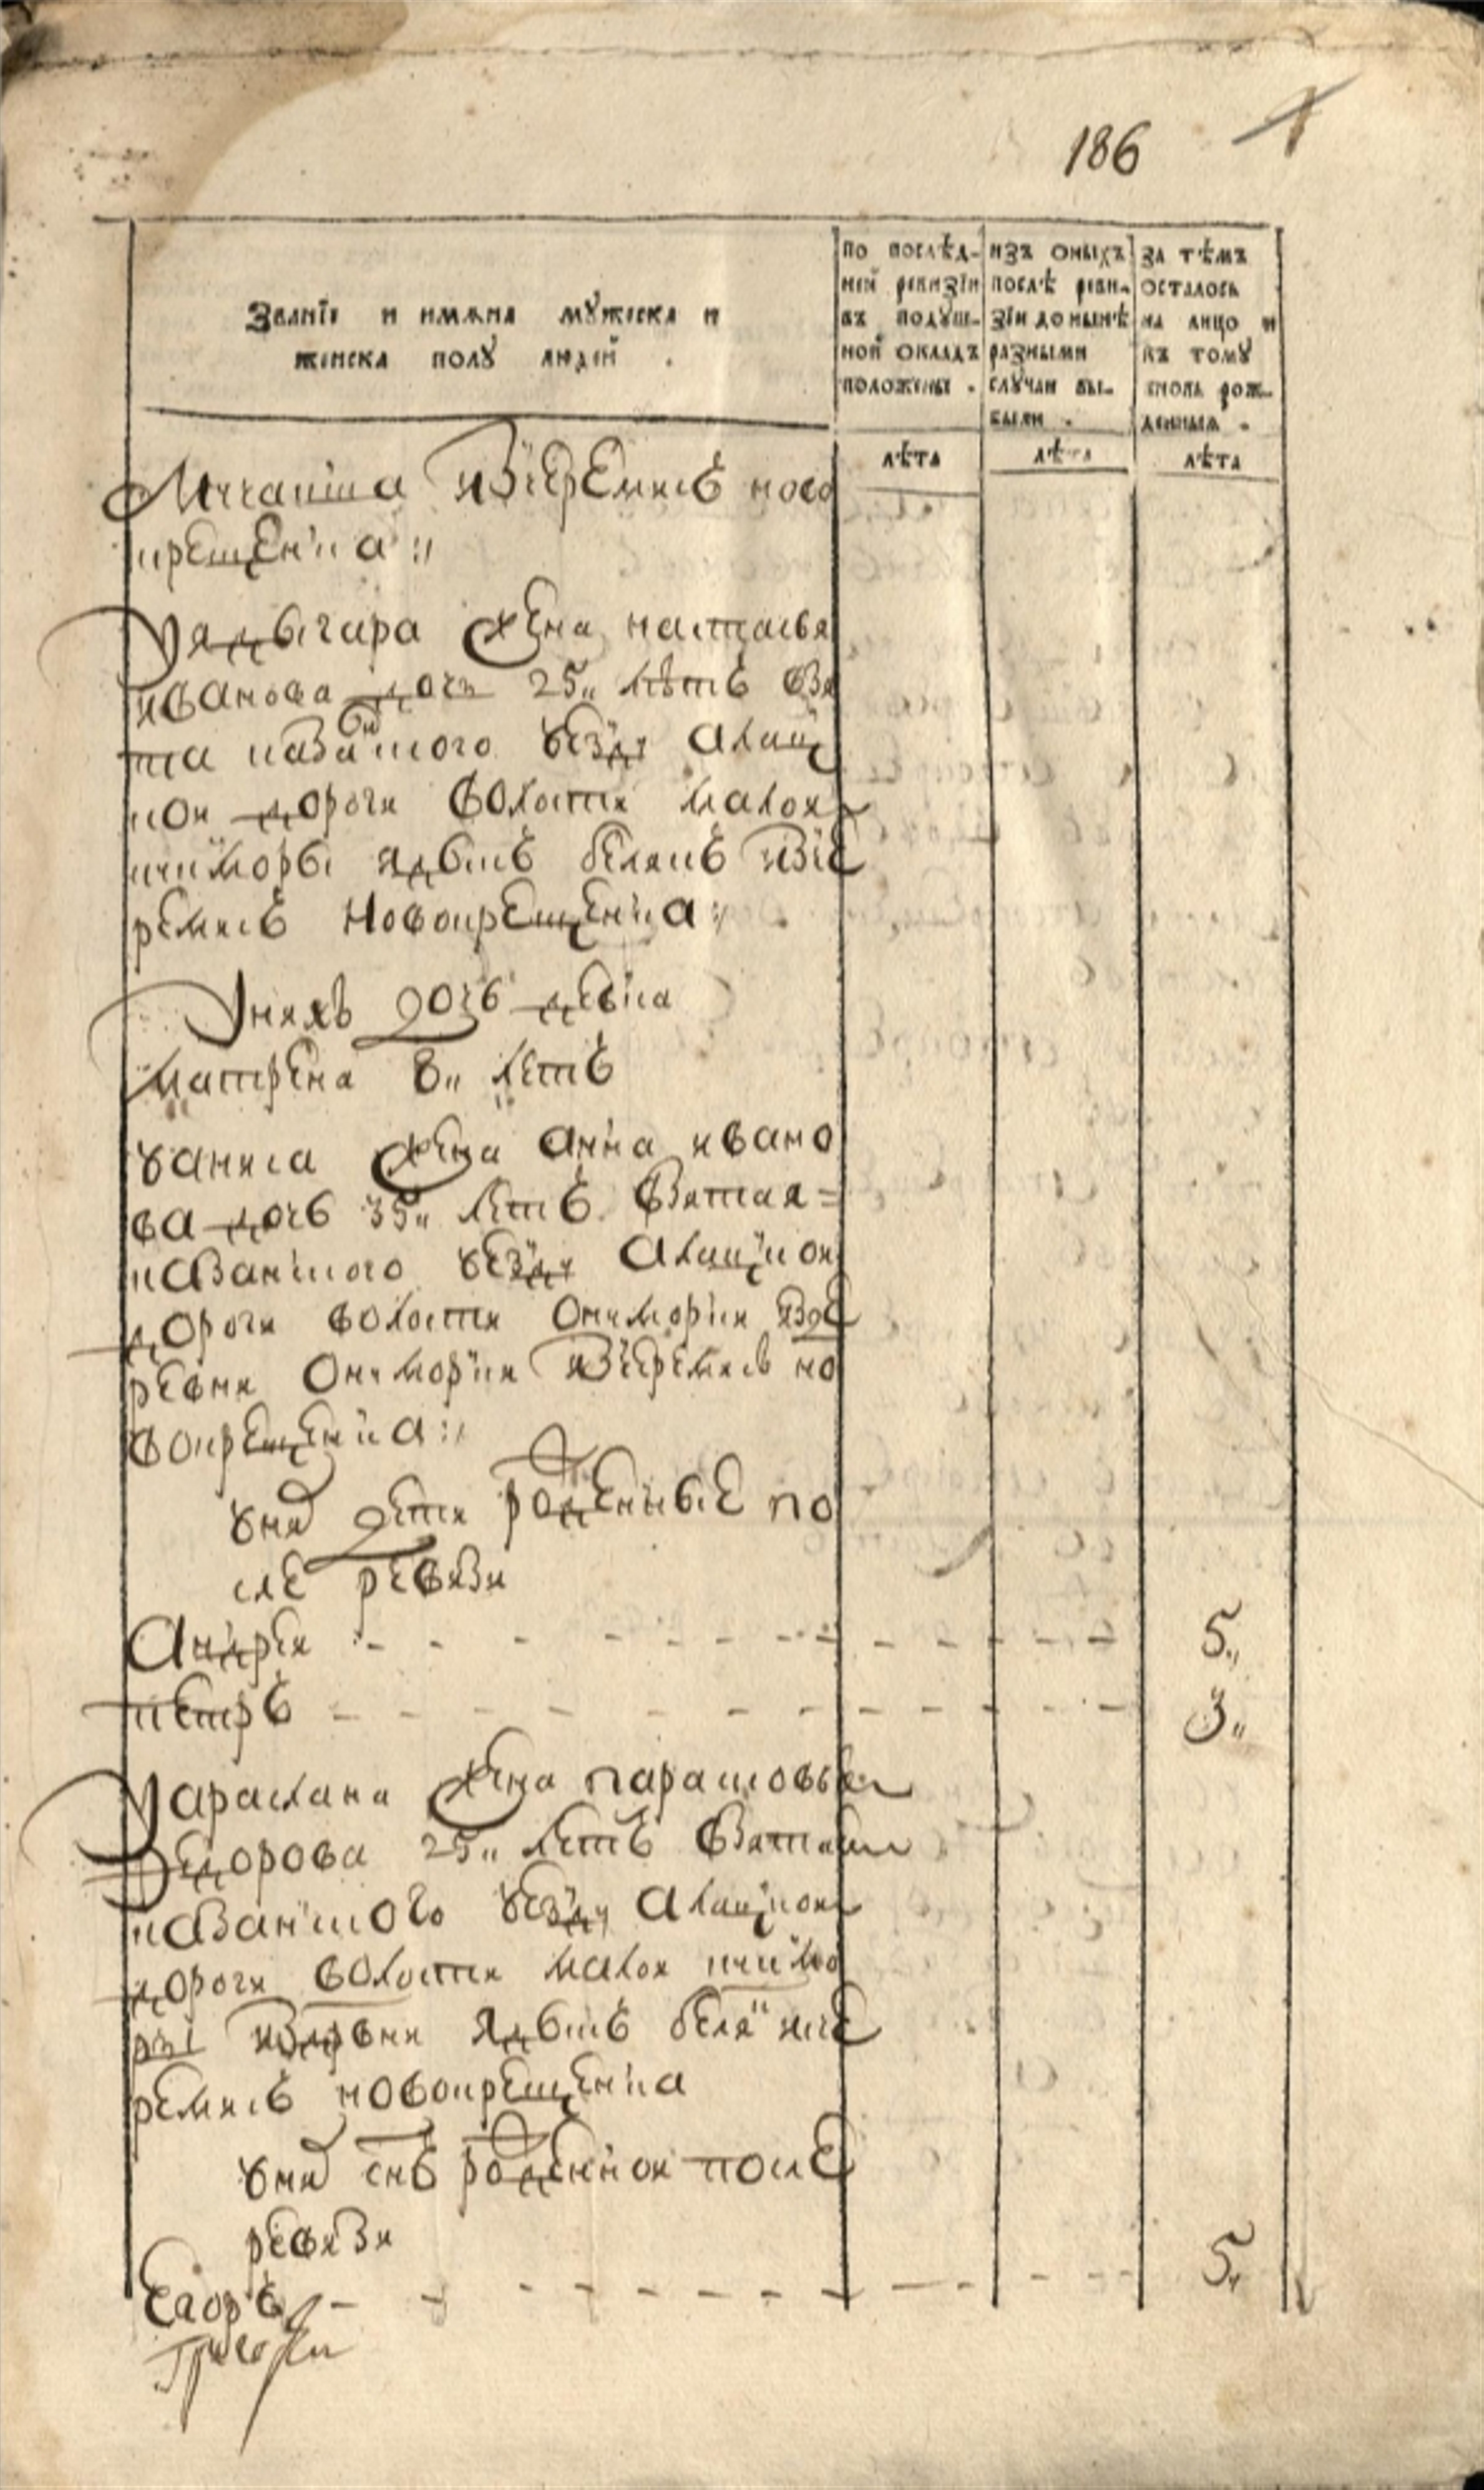 186
Званїе и имѧна мꙋжеска и
женска полꙋ людей .
по послѣд-
ней ревизїи
въ подꙋш-
ной окладъ
положены .
изъ оныхъ
послѣ реви-
зїи до нынѣ
разными
слꙋчаи вы-
были .
за тѣмъ
осталось
на лицо и
къ тому
вновь рож-
денныя .
лѣта
лѣта
лѣта
изчеремисъ ново
крещенка :,
жена настасья
иванова дочь 25,, лѣтъ взя
та казанского уезду алац
кои дороги волости малои
белякъ изче
ремисъ новокрещенка :,
У них дочь девка
матрена 8,, летъ
жена анна ивано
ва дочь 35,, летъ взятая =
казанского уезду алацкои
дороги волости изде
ревни изчеремисъ но
вокрещенка :,
у них дети рожденные по
сле ревизи
Андреи 5,,
петръ 3,,
жена парасковья
Федорова 25,, летъ взятая
казанского уезду алацкои
дороги волости малои
издревни белякъ ичсе
ремисъ новокрещенка
у них снъ рожденнои после
ревизи
Егоръ 5,,